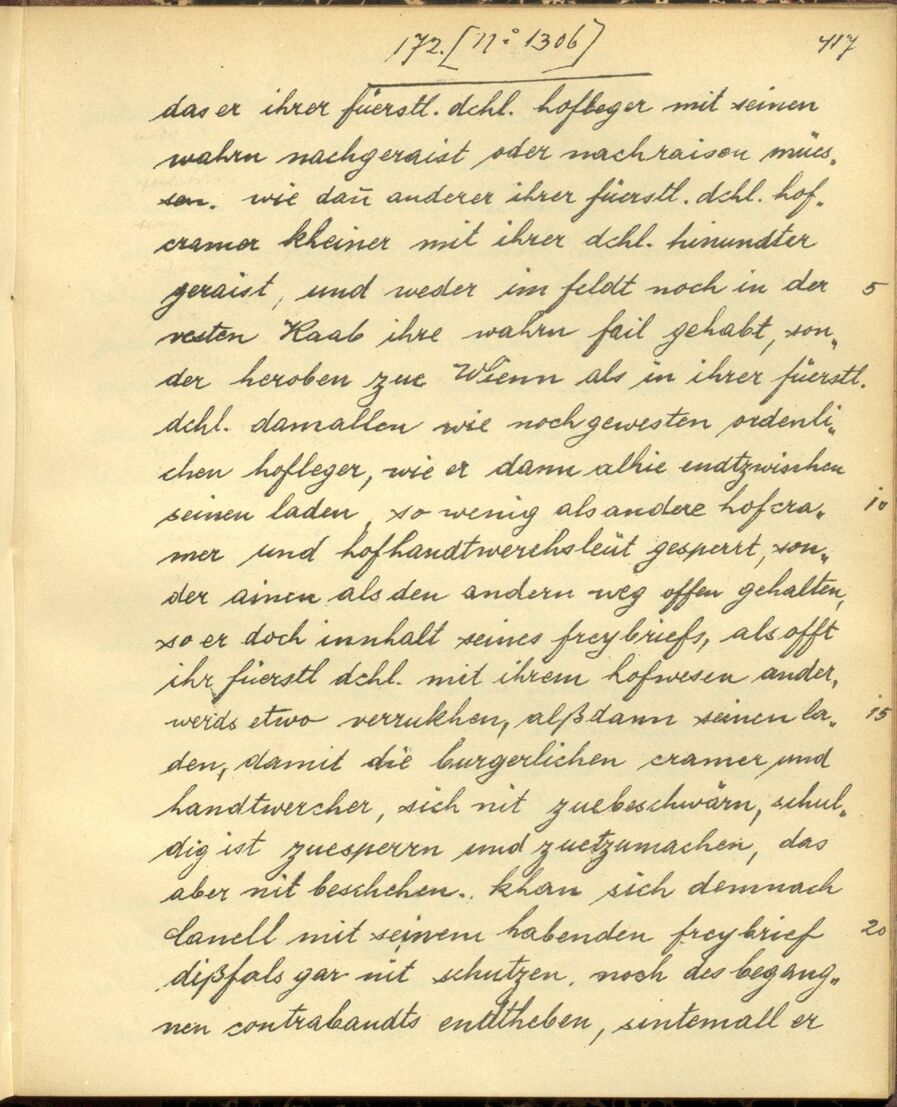 172. [No 1306] 417
das er ihrer füerstl. dchl. hofleger mit seinen
wahrn nachgeraist oder nachraisen mües„
sen. wie dan̄ anderer ihrer füerstl. dchl. hof„
cramer kheiner mit ihrer dchl. hinundter
geraist, und weder im feldt noch in der 5
vesten Raab ihre wahrn fail gehabt, son„
der heroben zue Wienn als in ihrer füerstl.
dchl. damallen wie noch gewesten ordenli„
chen hofleger, wie er dann alhie endtzwischen
seinen laden, so wenig als andere hofcra„ 10
mer und hofhandtwerchsleüt gesperrt, son„
der ainen als den andern weg offen gehalten,
so er doch innhalt seines freybriefs, als offt
ihr füerstl dchl. mit ihrem hofwesen ander„
werds etwo verrukhen, alßdann seinen la„ 15
den, damit die burgerlichen cramer und
handtwercher, sich nit zuebeschwärn, schul„
dig ist zuesperrn und zuetzumachen, das
aber nit beschehen. khan sich demnach
Canell mit seinem habenden freybrief 20
dißfals gar nit schutzen, noch des begang„
nen contrabandts enttheben, sintemall er